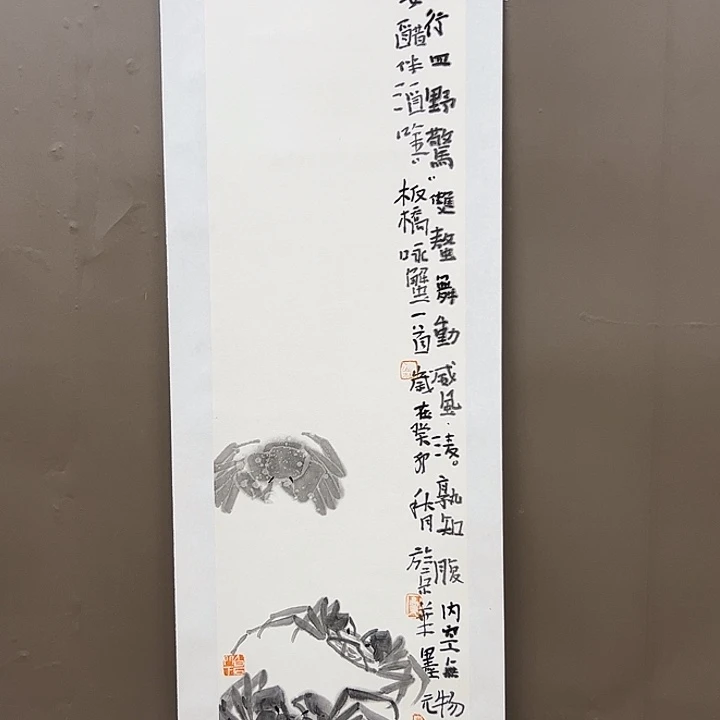 行四野驚双螯舞動威風凌。孰知腹内空無物
醋伴酒吟 板橋咏蟹一首 歲在癸卯秋月於京華墨元